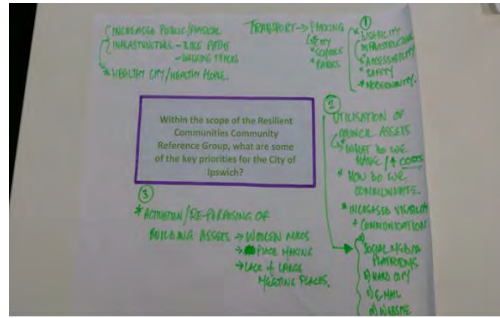 INCREASED PUBLIC/PHYSICAL
INFRASTRUCTURE - BIKE PATHS
- WALKING TRACKS
* HEALTHY CITY/HEALTHY PEOPLE.
TRANSPORT → PARKING
* CITY
* SCHOOLS
* PARKS
①
* DISABILITY
INFRASTRUCTURE
* ACCESSIBILITY
* SAFETY
* MODERNITY.
Within the scope of the Resilient
Communities Community
Reference Group, what are some
of the key priorities for the City of
Ipswich?
②
UTILISATION OF
COUNCIL ASSETS
* WHAT DO WE
HAVE / ↑ COSTS
* HOW DO WE
COMMUNICATE.
* INCREASED VISIBILITY
+ COMMUNICATION
SOCIAL MEDIA
PLATFORMS
HARD COPY
EMAIL
WEBSITE
③
* ACTIVATION/RE-PURPOSING OF
BUILDING ASSETS → WOOLEN MILLS
→ PLACE MAKING
→ LACK OF LARGE
MEETING PLACES.